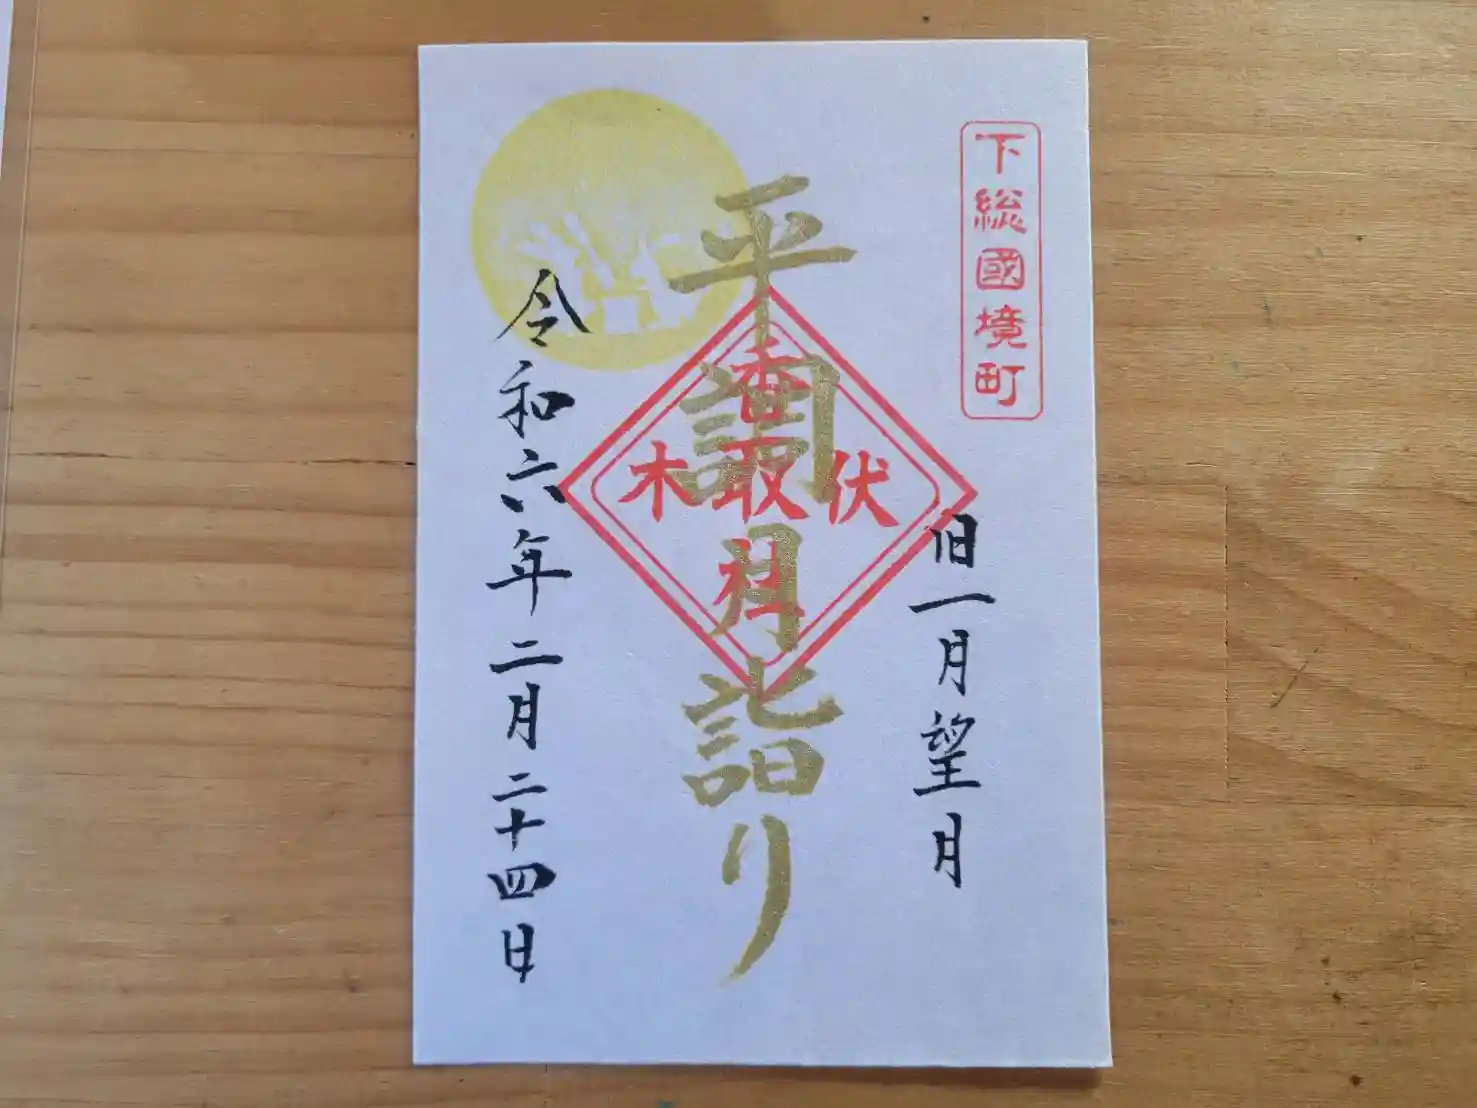 下総國境町
旧一月望月
平調月詣り
伏木
香取社
令和六年二月二十四日